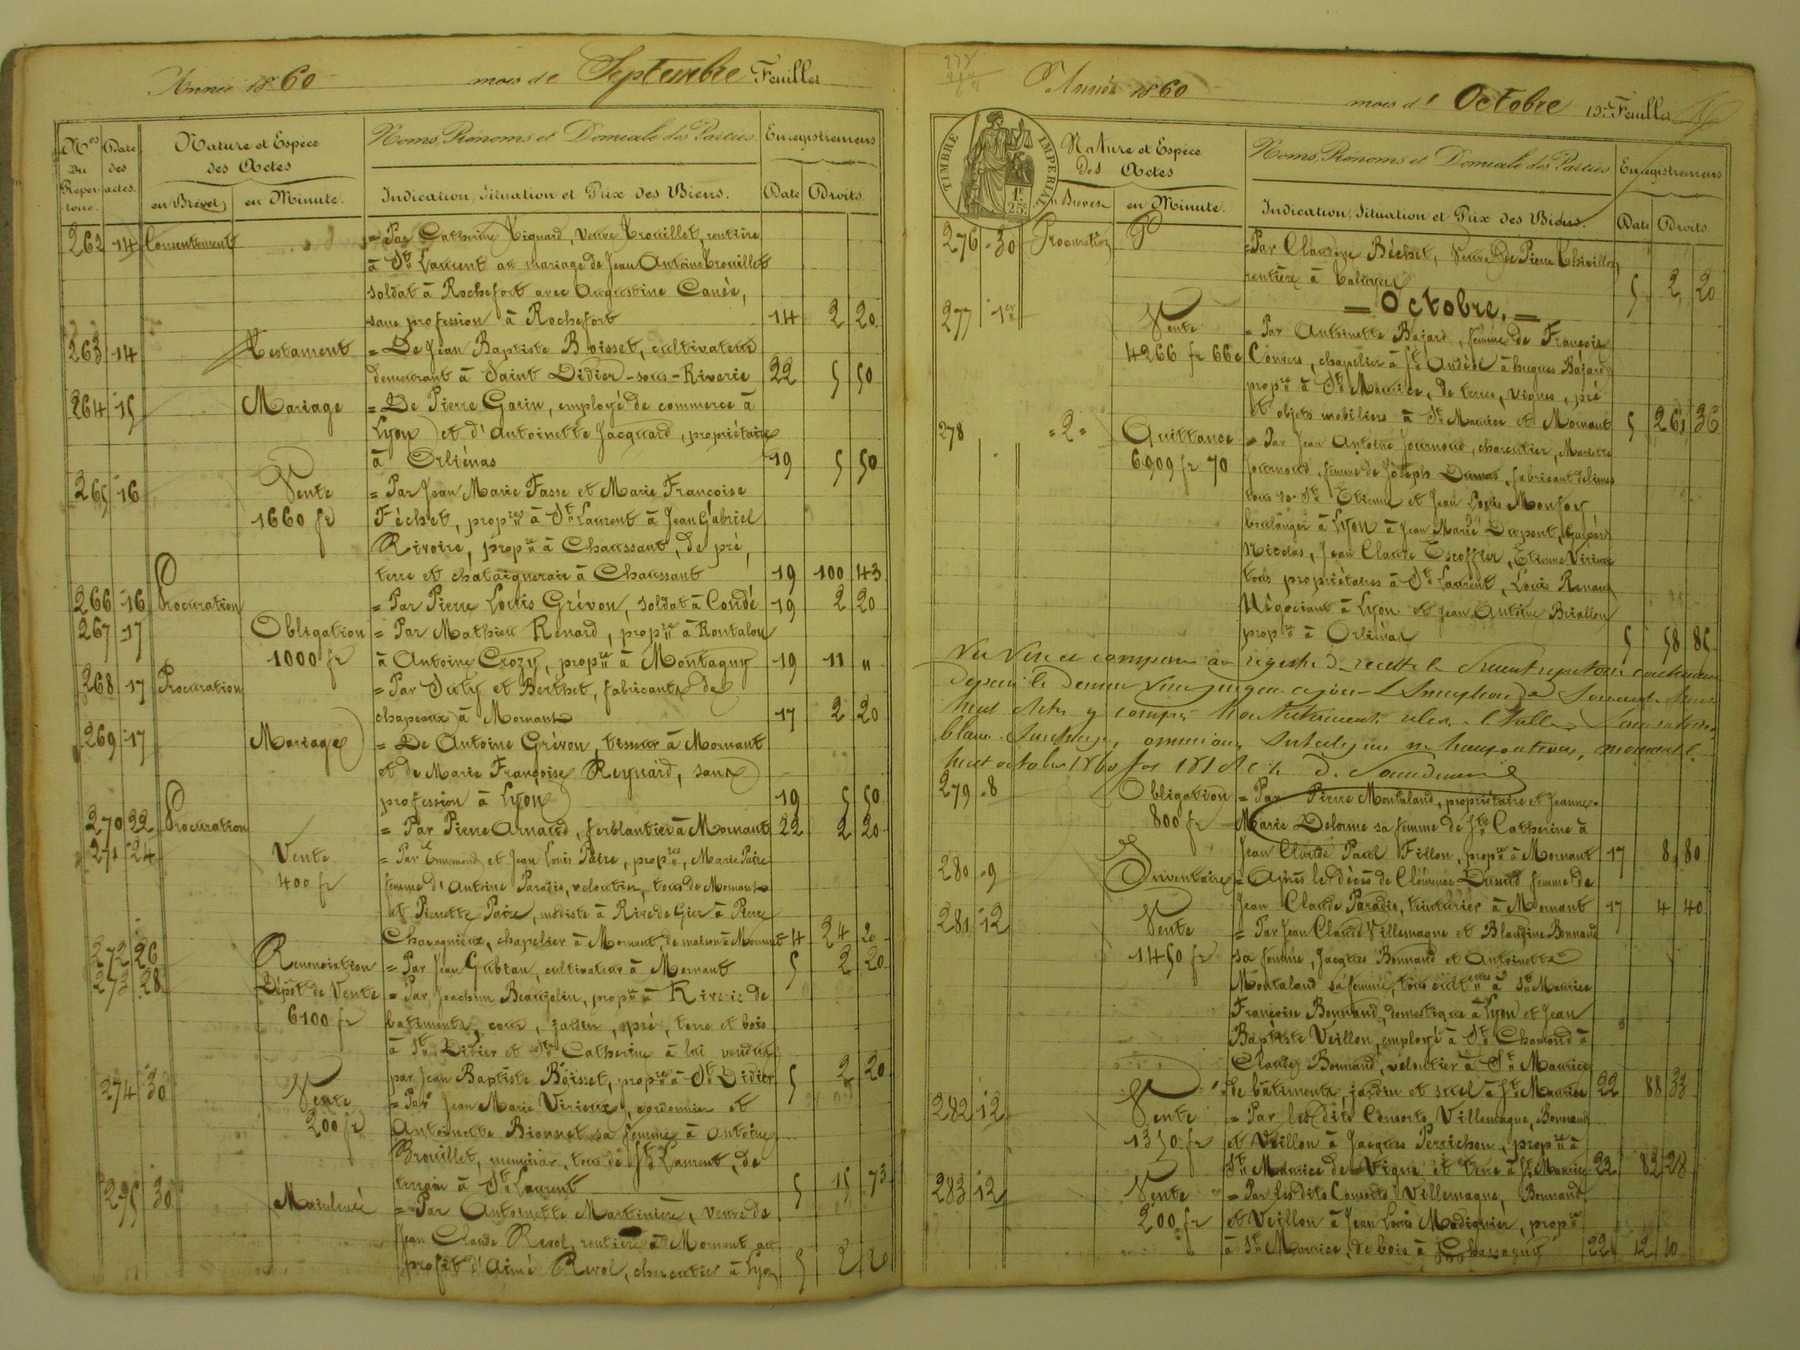 Année 1860 mois de Septembre Feuillet
Nos du Répertoire. Date des actes. Nature et Espèce des Actes Noms, Prénoms et Domicile des Parties Enregistremens
en Brevet en Minute. Indication, Situation et Prix des Biens. Date Droits.
262 14 Consentement = Par Catherine Vignard, veuve Trouillet, rentière
à St Laurent au mariage de Jean Antoine Trouillet
soldat à Rochefort avec Augustine Canée,
sans profession à Rochefort 14 2 20
263 14 Testament = De Jean Baptiste Boisset, cultivateur
demeurant à Saint Didier-sous-Riverie 22 5 50
264 15 Mariage = De Pierre Garin, employé de commerce à
Lyon et d'Antoinette Jacquard, propriétaire
à Orliénas 19 5 50
265 16 Vente = Par Jean Marie Fasse et Marie Françoise
1660 fr Féchet, propres à St Laurent à Jean Gabriel
Rivoire, propre à Chaussant, de pré,
terre et châtaigneraie à Chaussant 19 100 43
266 16 Procuration = Par Pierre Louis Grévon, soldat à Condé 19 2 20
267 17 Obligation = Par Mathieu Renard, propre à Rontalon
1000 fr à Antoine Crozy, propre à Montagny 19 11 "
268 17 Procuration = Par Suly et Berthet, fabricants de
chapeaux à Mornant 17 2 20
269 17 Mariage = De Antoine Grévon, tisseur à Mornant
et de Marie Françoise Reynard, sans
profession à Lyon 19 5 50
270 22 Procuration = Par Pierre Arnaud, ferblantier à Mornant 22 2 20
271 24 Vente = Par Ennemond et Jean Louis Paire, propres, Marie Paire
400 fr femme d'Antoine Paradis, veloutier, tous de Mornant
et Pierrette Paire, modiste à Rive de Gier à Pierre
Chavagnieux, chapelier à Mornant, de maison à Mornant 4 24 20
272 26 Renonciation = Par Jean Gubian, cultivateur à Mornant 5 2 20
273 28 Dépôt de Vente = Par Joachim Beaujolin, propre à Riverie de
6100 fr batiments, cour, jardin, pré, terre et bois
à St Didier et Ste Catherine à lui vendus
par Jean Baptiste Boisset, propre à St Didier 5 2 20
274 30 Vente = Par Jean Marie Virieux, cordonnier et
200 fr Antoinette Bionnet sa femme à Antoine
Brouillet, menuisier, tous de St Laurent, de
terrain à St Laurent 5 15 73
275 30 Mainlevée = Par Antoinette Martinière, veuve de
Jean Claude Revol, rentière à Mornant au
profit d'Aimé Revol, charcutier à Lyon 5 2 20
Année 1860 mois d' Octobre 13e Feuillet
TIMBRE IMPERIAL 1f. 25c.
Nature et Espèce des Actes Noms, Prénoms et Domicile des Parties Enregistremens
en Brevet en Minute. Indication, Situation et Prix des Biens. Date Droits.
276 30 Procuration = Par Claudine Béchet, veuve de Pierre Thivillon
rentière à 5 2 20
= Octobre. =
277 1er Vente = Par Antoinette Bajard, femme de François
4266 fr 66c Convers, chapelier à St Andéol à hugues Bajard
propre à St Maurice, de terres, vignes, pré
et objets mobiliers à St Maurice et Mornant 5 261 36
278 2 Quittance = Par Jean Antoine Journoud, charcutier, Mariette
6909 fr 70 Journoud, femme de Joseph Dumas, fabricant de limes
tous de St Etienne et Jean Louis
boulanger à Lyon à Jean Marie Dupont,
Nicolas, Jean Claude Escoffier, Etienne Virieux
tous propriétaires à St Laurent, Louis Renaud
Négociant à Lyon et Jean Antoine Briallon
propre à Orliénas 5 58 85
Vu Visé et comparé au registre de recette le présent répertoire contenant
depuis le dernier Visa jusqu'à ce jour l'inscription de soixante
huit actes y compris
blanc surcharge, omission, Interligne ni, Mornant le
huit octobre 1860
279 8 Obligation = Par Pierre Montaland, propriétaire et Jeanne
800 fr Marie Delorme sa femme de Ste Catherine à
Jean Claude Paul Fillon, propre à Mornant 17 8 80
280 9 Inventaire = Après le décès de Clémence Dumas femme de
Jean Claude Paradis, teinturier à Mornant 17 4 40
281 12 Vente = Par Jean Claude Villemagne et Blandine Bonnand
1450 fr sa femme, Jacques Bonnand et Antoinette
Montaland sa femme, tous cultrs à St Maurice
Françoise Bonnand, domestique à Lyon et Jean
Baptiste Veillon, employé à St Chamond à
Claude Bonnand, veloutier à St Maurice
de bâtiments, jardin et sol à St Maurice 22 88 33
282 12 Vente = Par les dits Consorts Villemagne, Bonnand
1350 fr et Veillon à Jacques Perrichon, propre à
St Maurice de Vigne et terre à St Maurice 22 82 28
283 12 Vente = Par les dits Consorts Villemagne, Bonnand
200 fr et Veillon à Jean Louis Madignier, propre
à St Maurice, de bois à Chassagny 22 12 10